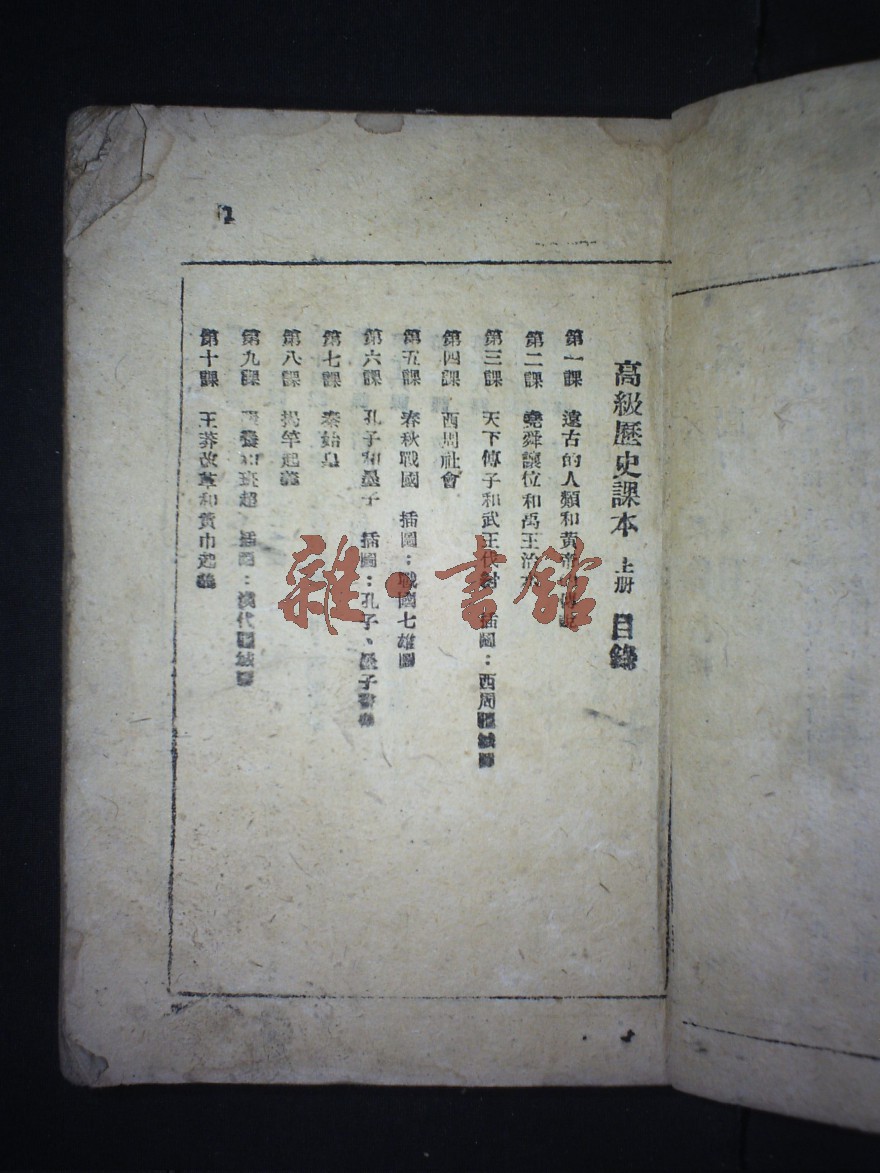 高級歷史課本 上册 目錄
第一課 遠古的人類和黃帝
第二課 堯舜讓位和禹王治
第三課 天下傳子和武王伐紂 插圖：西周疆域圖
第四課 西周社會
第五課 春秋戰國 插圖：戰國七雄圖
第六課 孔子和墨子 插圖：孔子、墨子
第七課 秦始皇
第八課 揭竿起義
第九課 和班超 插圖：漢代疆域圖
第十課 王莽改革和黃巾起義
1
雜·書館